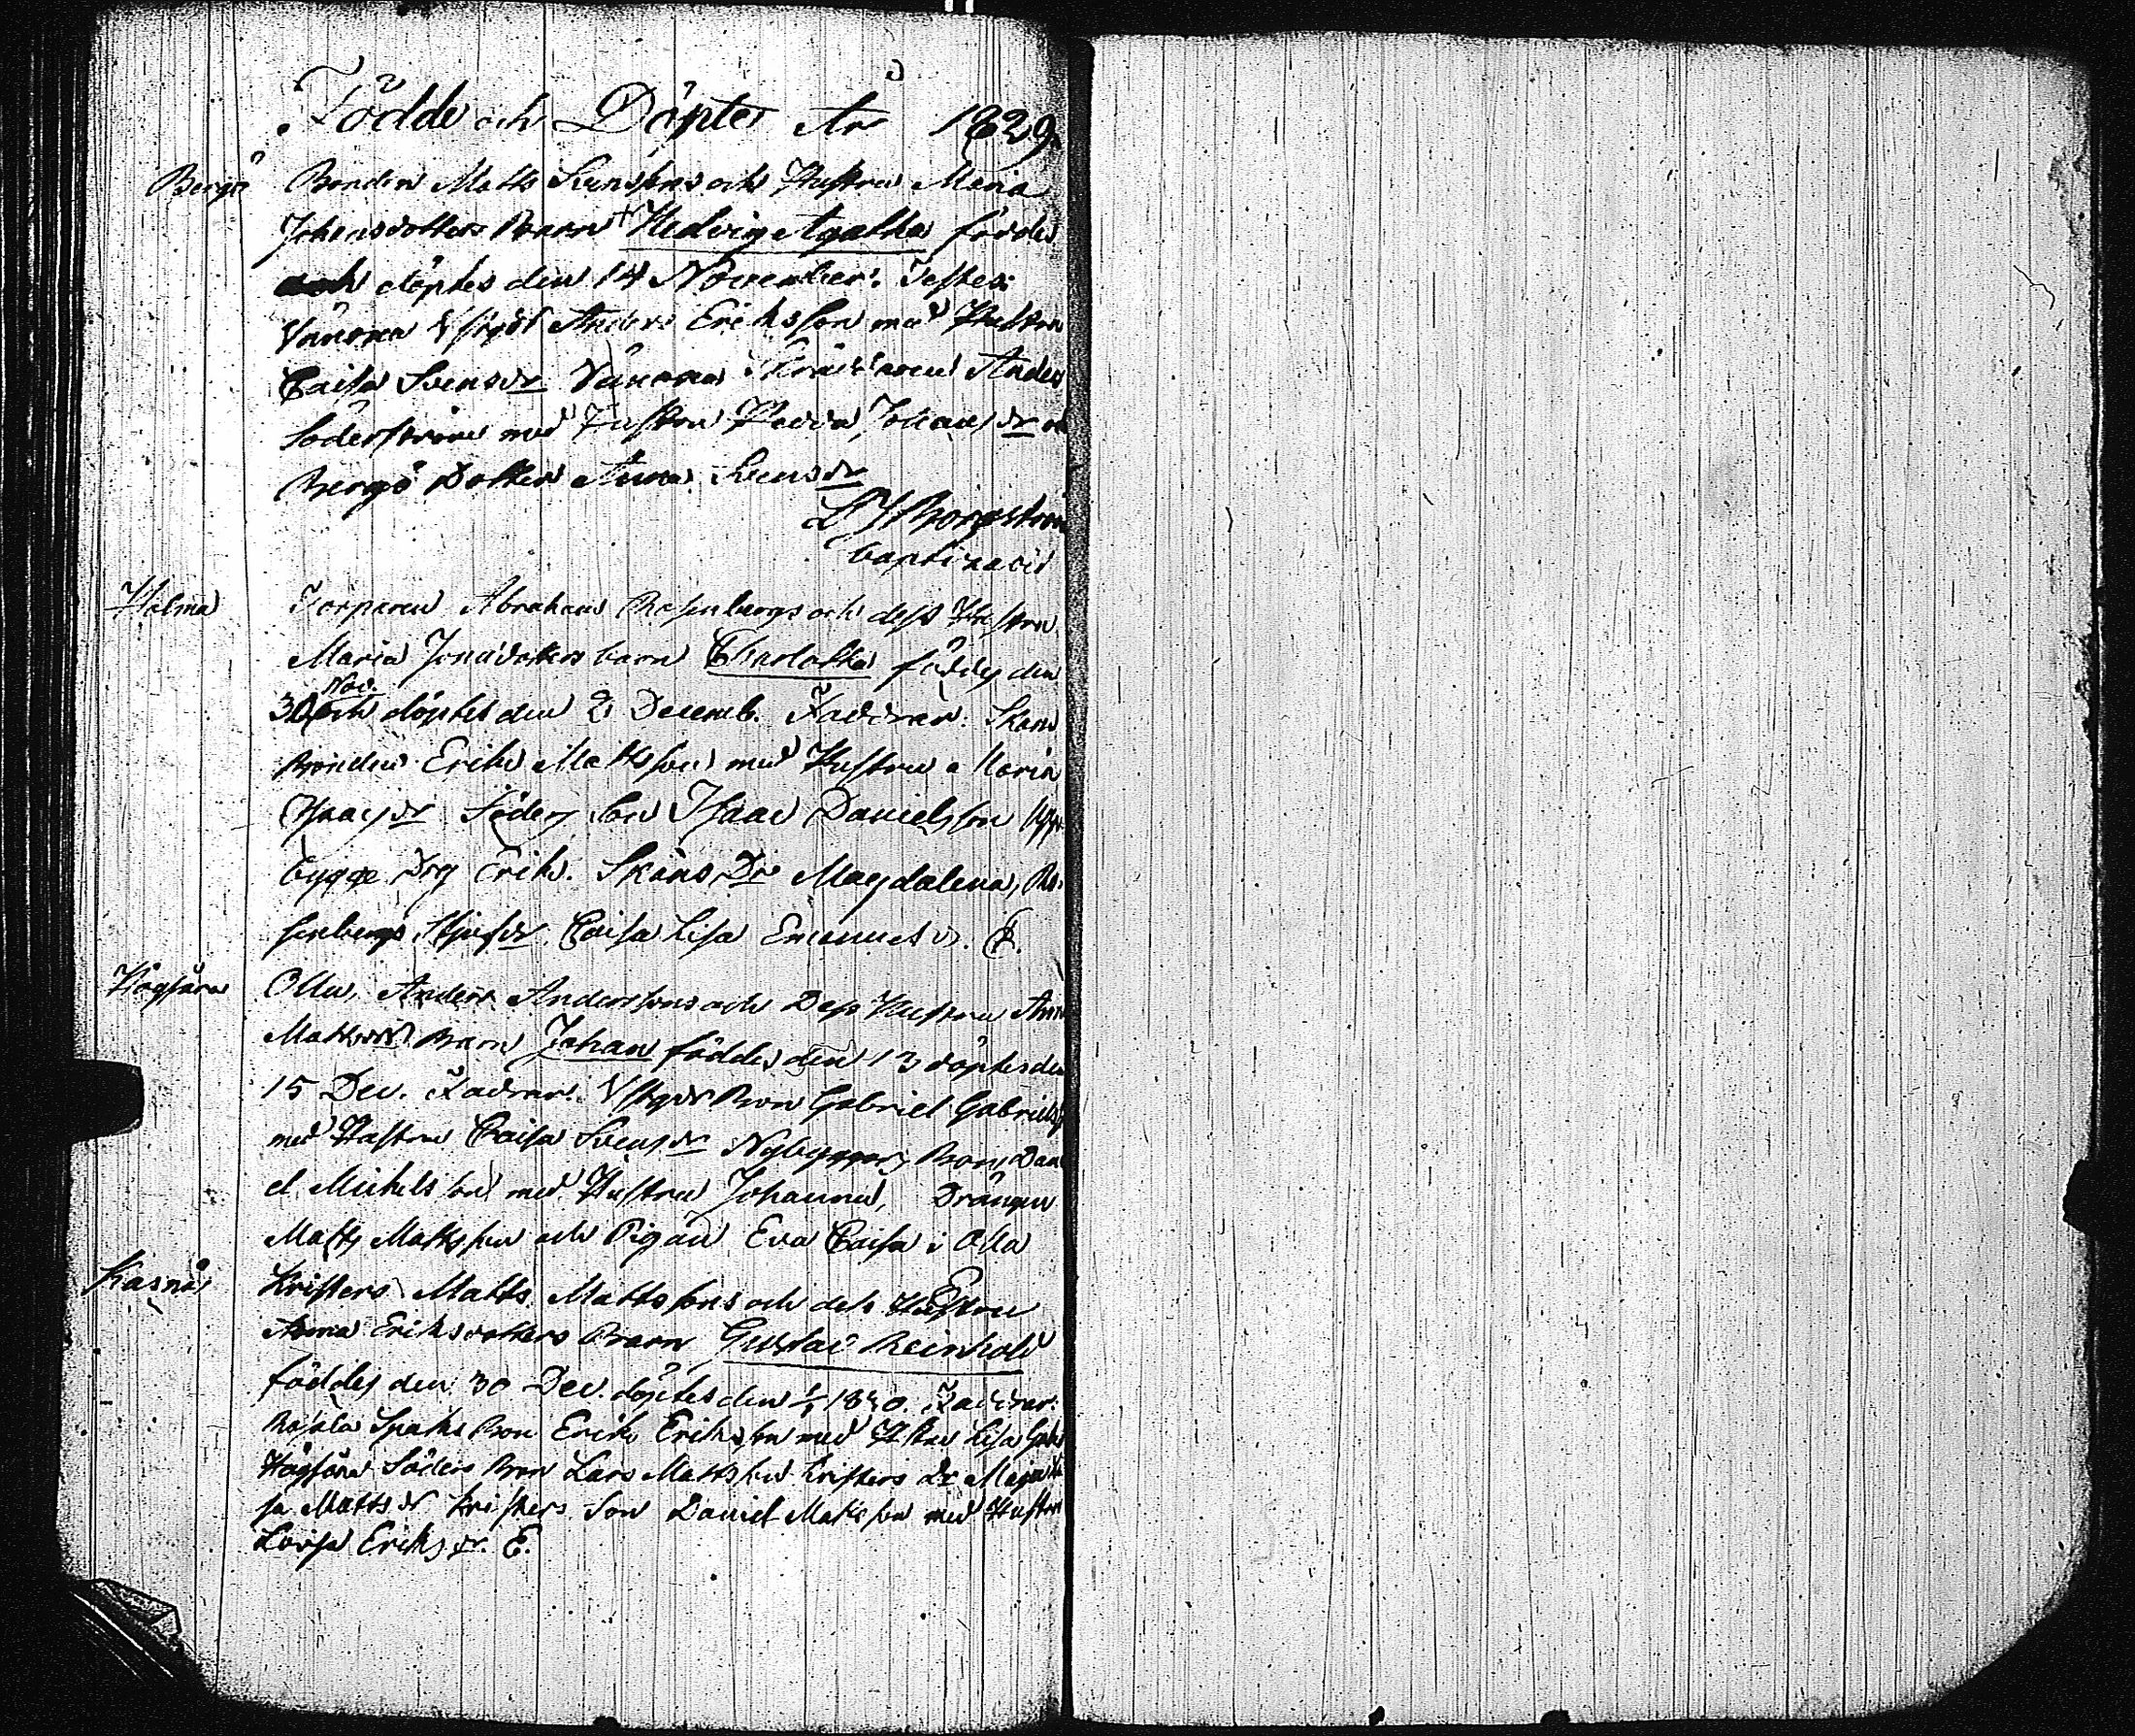 Födde och Döpte År 1829.
Bergö Bonden Matts Svenssons och Hustru Maria
Johansdotters Barn Hedvig Agatha föddes
och döptes den 14 November. Testes:
Vänoxa Anders Eriksson med Hustru
Caisa Svensdr Vänoxa Skräddaren Anders
Söderström med Hustru Hedda Johansdr och
Bergö Dotter Anna Svensdr
Borgström
baptizavit
Holma Torparen Abraham Rosenbergs och dess Hustru
Maria Jonasdotters barn Charlotta föddes den
Nov.
30 och döptes den 2 Decemb. Faddrar: Skans
Bonden Erik Mattsson med Hustru Maria
Isaacsdr Söders Son Isaac Danielsson
bygge Drg Erik. Skans Dr Magdalena, Ro-
senbergs Stjufdr. Caisa Lisa Emanuelsdr.
Högsåra Olla, Anders Anderssons och Dess Hustru Anna
Mattsdrs Barn Johan föddes den 13 döptes den
15 Dec. Faddrar: Bon Gabriel Gabrielss
med Hustru Caisa Svensdr Nybyggars Bon Dani
el Michelsson med Hustru Johanna, Drängen
Matts Mattsson och Pigan Eva Caisa i Olla
Kasnäs Kristers Matts Mattssons och dess Hustru
Anna Eriksdotters Barn Gustav Reinhold
föddes den 30 Dec. döptes den 1/1 1830. Faddrar:
Rosala Spaks Bon Erik Eriksson med Hstru Lisa Gabr
Högsåra Söders Bon Lars Mattsson Kristers Dr Maja Li
sa Mattsdr Kristers Son Daniel Mattsson med Hustru
Lovisa Eriksdr. E.